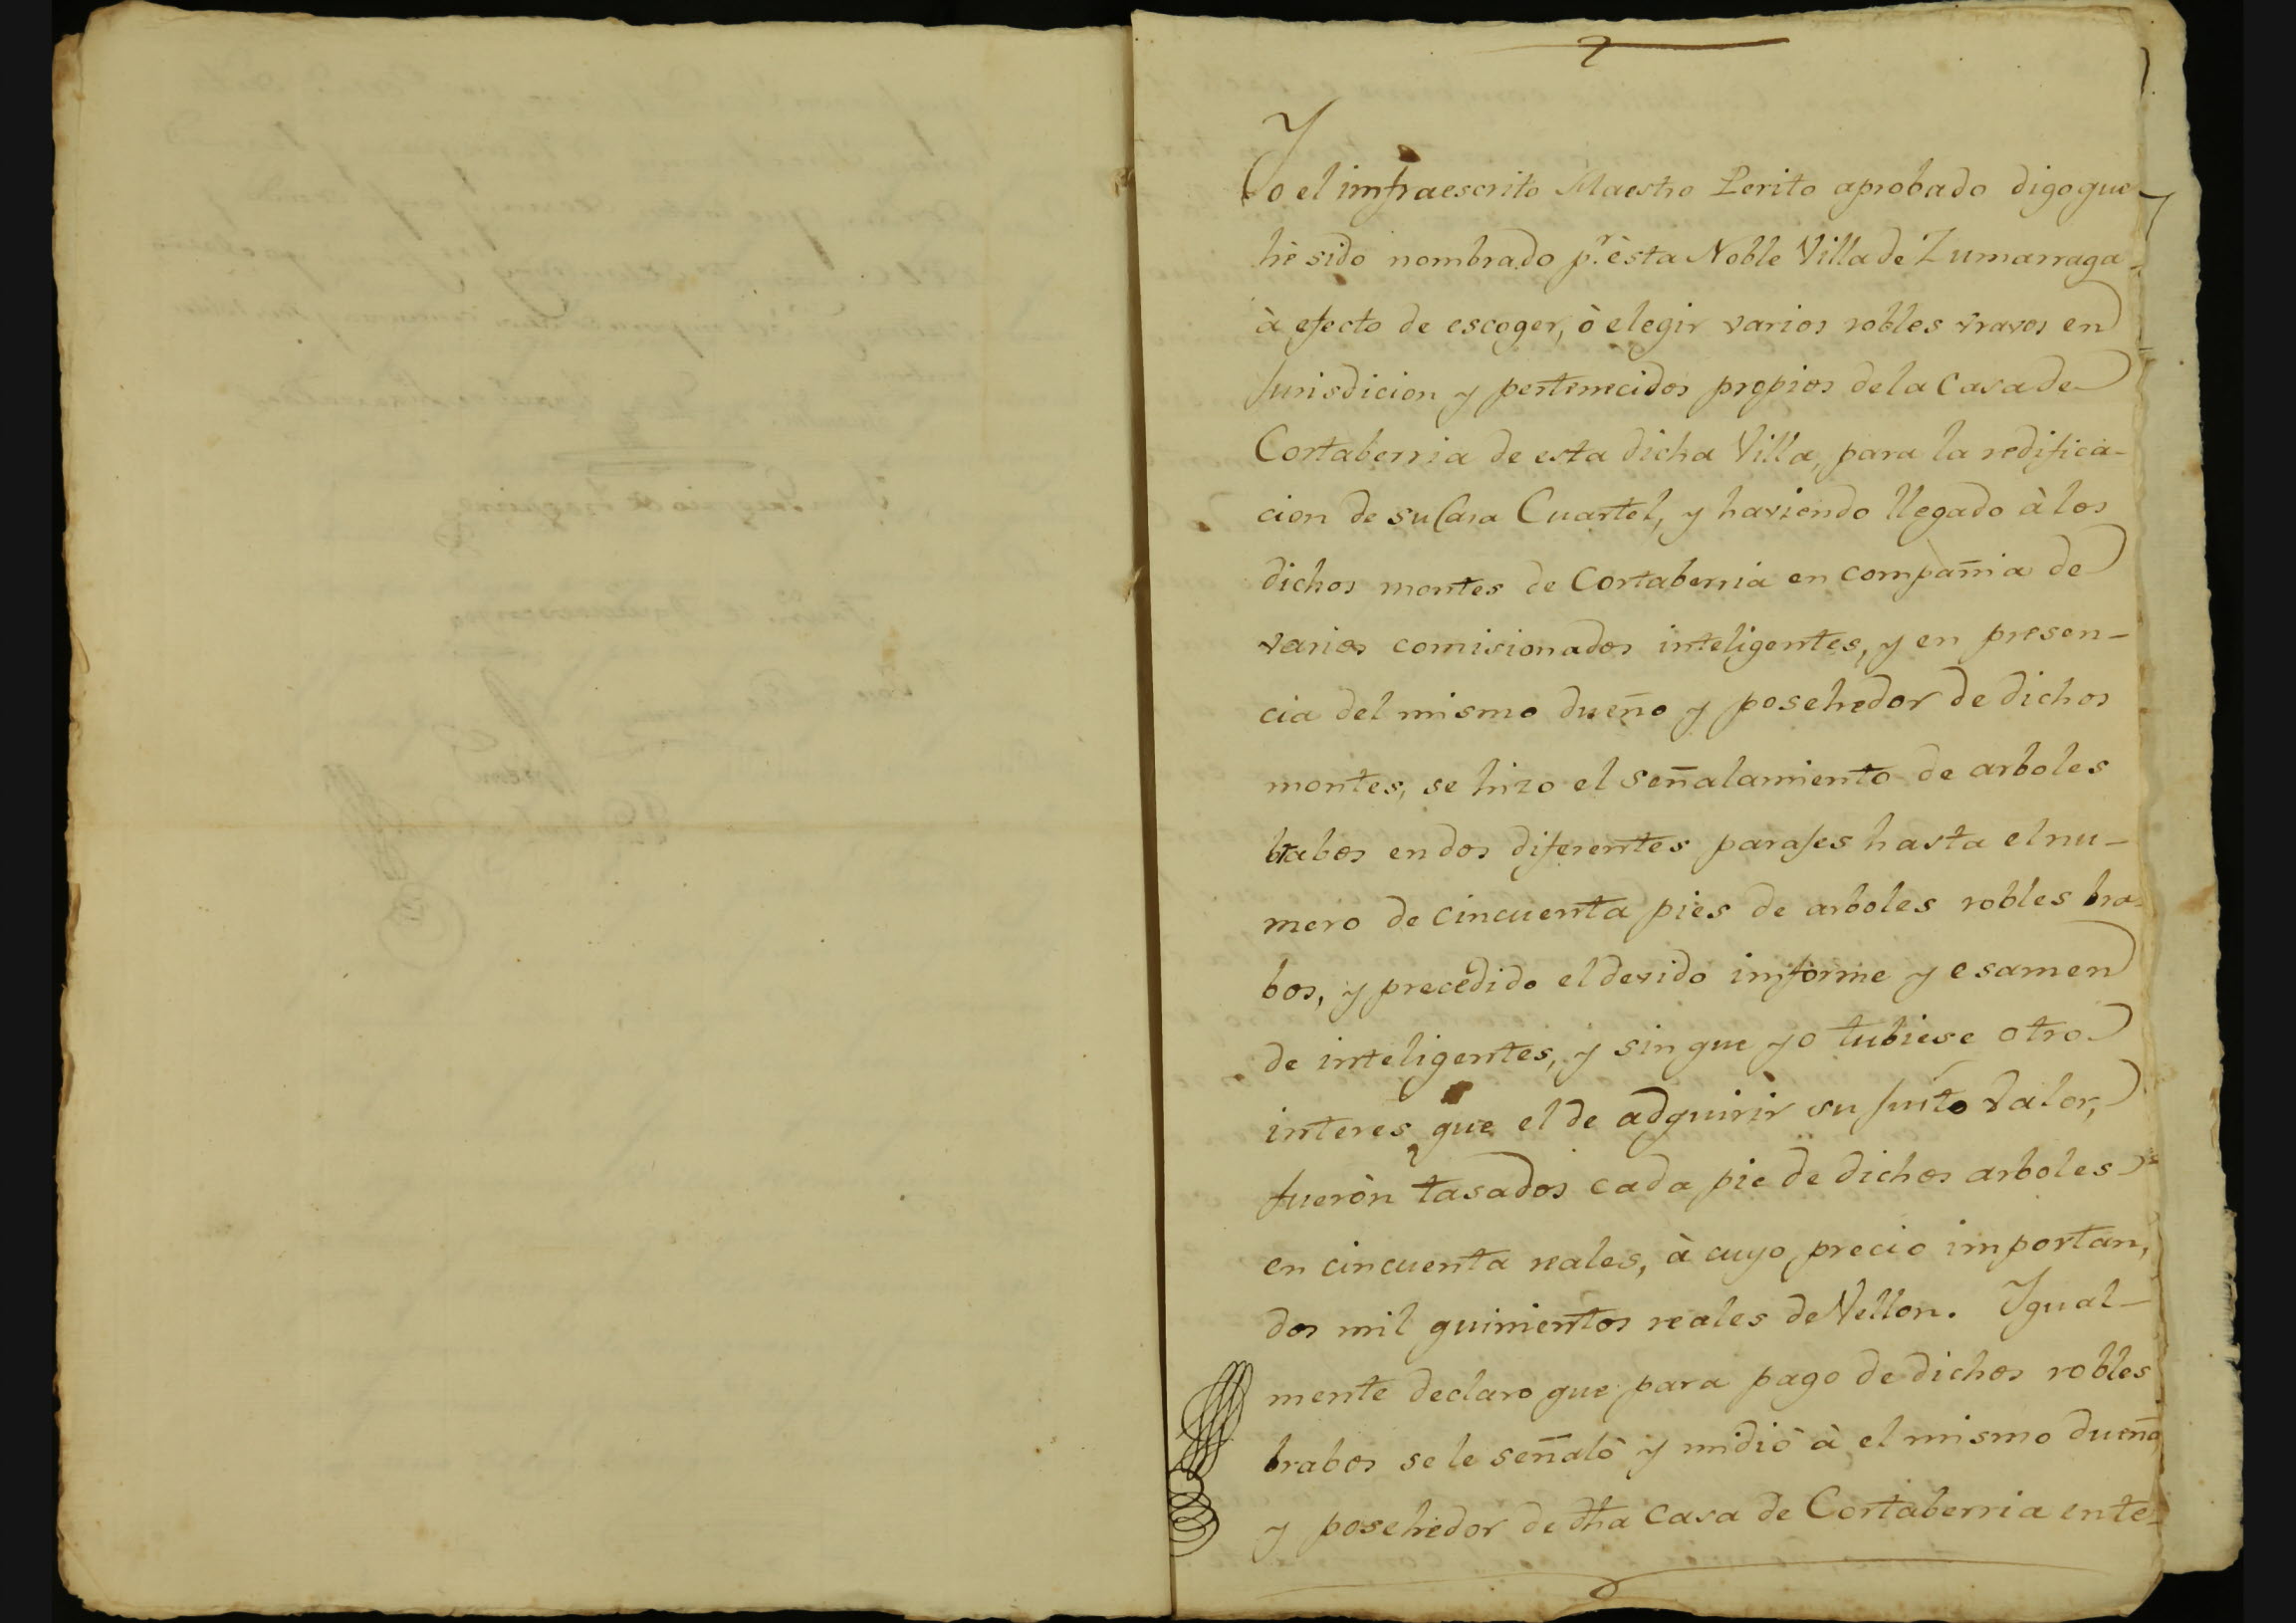 Yo el imfraescrito Maestro Perito aprobado digo que
hè sido nombrado pr. èsta Noble Villa de Zumarraga
à efecto de escoger, ò elegir varios robles vravos en
Jurisdicion y pertenecidos propios de la Casa de
Cortaberria de esta dicha Villa, para la redifica-
cion de su Casa Cuartel, y haviendo llegado à los
dichos montes de Cortaberria en compañia de
varios comisionados inteligentes, y en presen-
cia del mismo dueño y posehedor de dichos
montes, se hizo el señalamiento de arboles
brabos en dos diferentes parajes hasta el nu-
mero de cincuenta pies de arboles robles bra-
bos, y precedido el devido imforme y esamen
de inteligentes, y sin que yo tubiese otro
interes que el de adquirir su justo valor,
fueròn tasados cada pie de dichos arboles
en cincuenta reales, à cuyo precio importan,
dos mil quinientos reales de Vellon. Igual-
mente declaro que para pago de dichos robles
brabos se le señalò y midiò à el mismo dueño
y posehedor de dha Casa de Cortaberria en te-